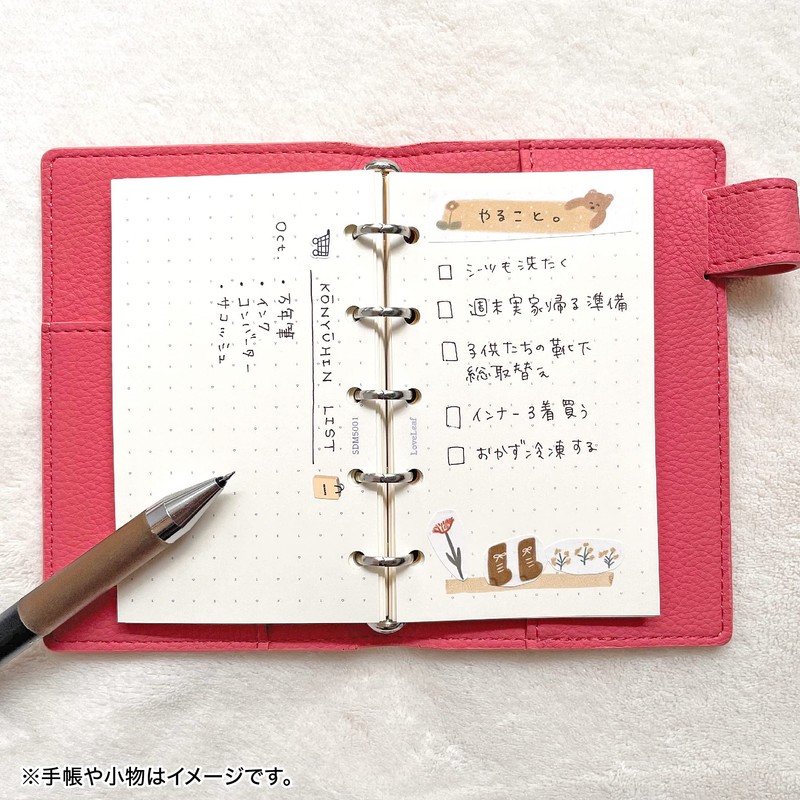 KŌNYŪHIN LIST
Oct.
・万年筆
・インク
・コンバーター
・サコッシュ
SDM5001
LoveLeaf
やること。
シーツも洗たく
週末実家帰る準備
子供たちの靴下
総取替え
インナー3着買う
おかず冷凍する
※手帳や小物はイメージです。